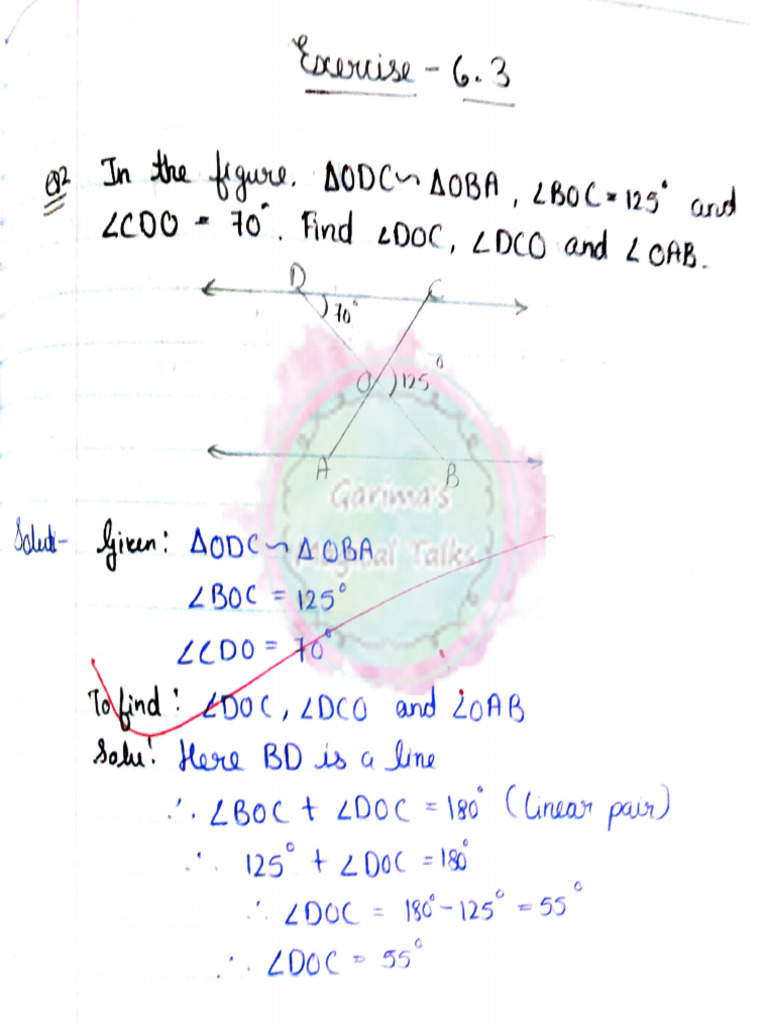 Exercise - 6.3
Q2 In the figure. ΔODC ~ ΔOBA, ∠BOC = 125° and
∠CDO = 70°. Find ∠DOC, ∠DCO and ∠OAB.
D C
70°
O 125°
A B
Garima's
Magical Talks
Solut- Given: ΔODC ~ ΔOBA
∠BOC = 125°
∠CDO = 70°
To find: ∠DOC, ∠DCO and ∠OAB
Solu: Here BD is a line
∴ ∠BOC + ∠DOC = 180° (linear pair)
∴ 125° + ∠DOC = 180°
∴ ∠DOC = 180° - 125° = 55°
∴ ∠DOC = 55°